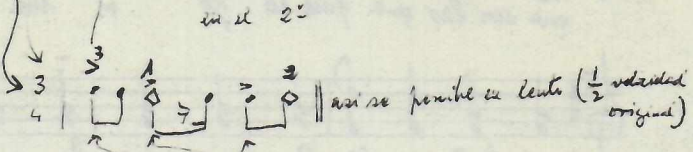 en el 2º
3 1 2
3
4 7 así se percibe en lento (1/2 velocidad
original)